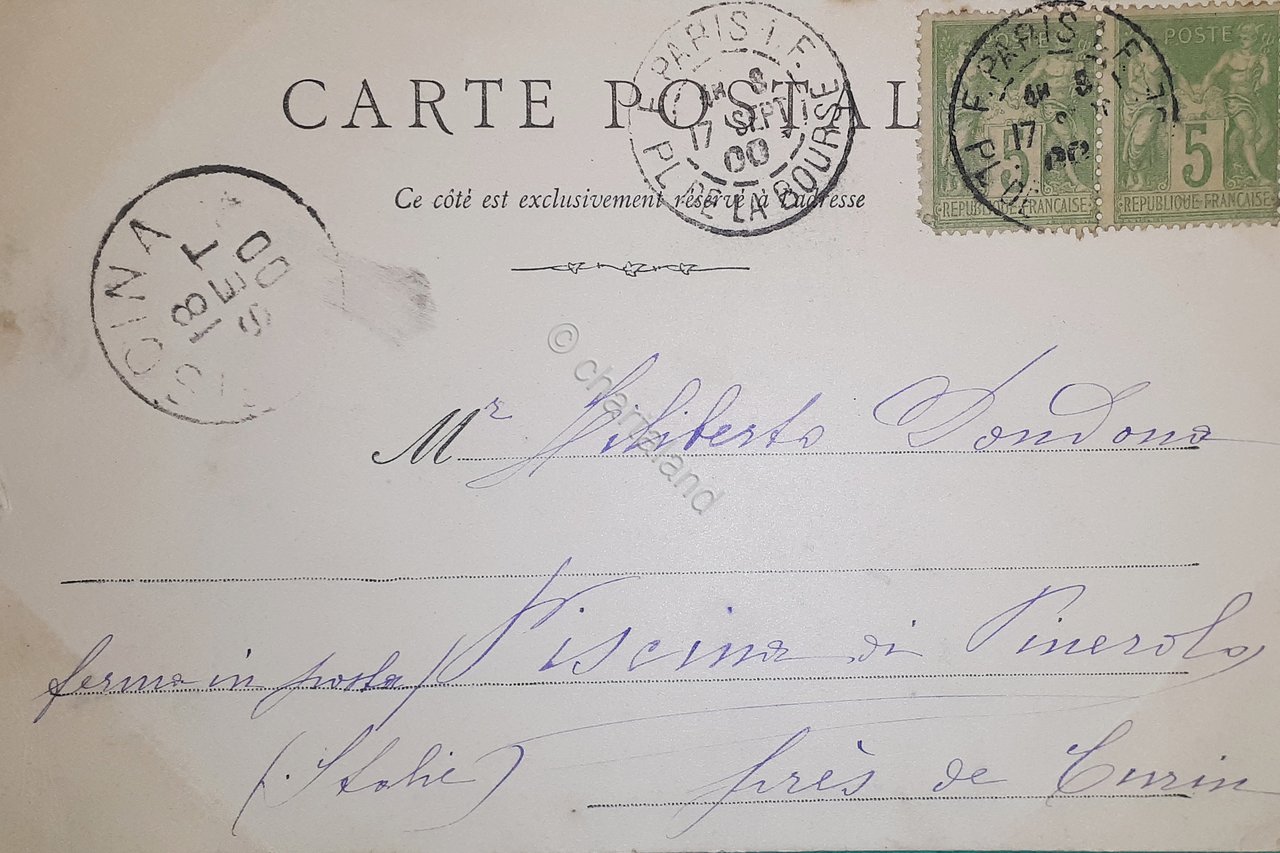 CARTE POSTALE
PARIS I. E.
8
17 SEPT
00
PL. DE LA BOURSE
POSTE
5
REPUBLIQUE FRANCAISE
POSTE
5
REPUBLIQUE FRANCAISE
PARIS I. E.
8
17
00
Ce côté est exclusivement réservé à l'adresse
18 SET
00
© chartaland
Mr Filiberto Dondona
ferma in posta / Piscina di Pinerolo
(Italie) près de Turin